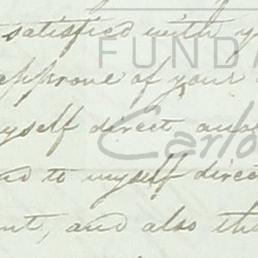 satisfied with y
FUNDA
approve of your
myself direct ano
Carlo
nd to myself direc
nt, and also tha